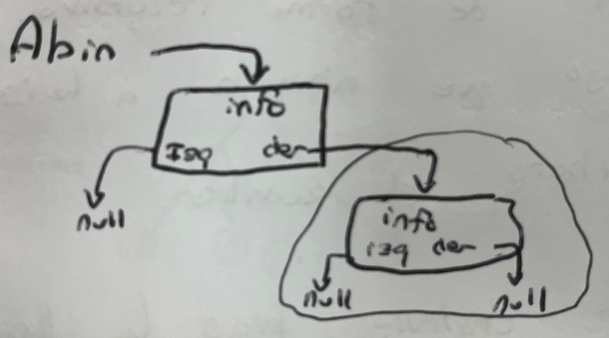 Abin
info
Izq der
null
info
izq der
null null